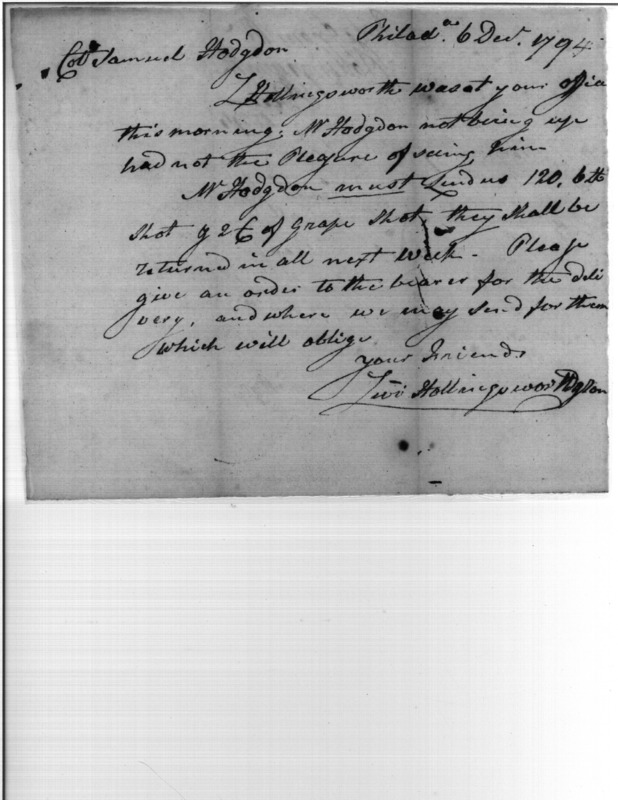 Philad.ᵃ 6 Decr. 1794
Col Samuel Hodgdon
L Hollingsworth was at your office
this morning; Mr Hodgdon not being up
had not the Pleasure of seeing him
Mr Hodgdon must Lend us 120, 6 lb
Shot & 2 C of Grape Shot, they shall be
returned in all next week. Please
give an order to the bearer for the deli
very, and where we may send for them
which will oblige
your Friends
Levi Hollingsworth & Son